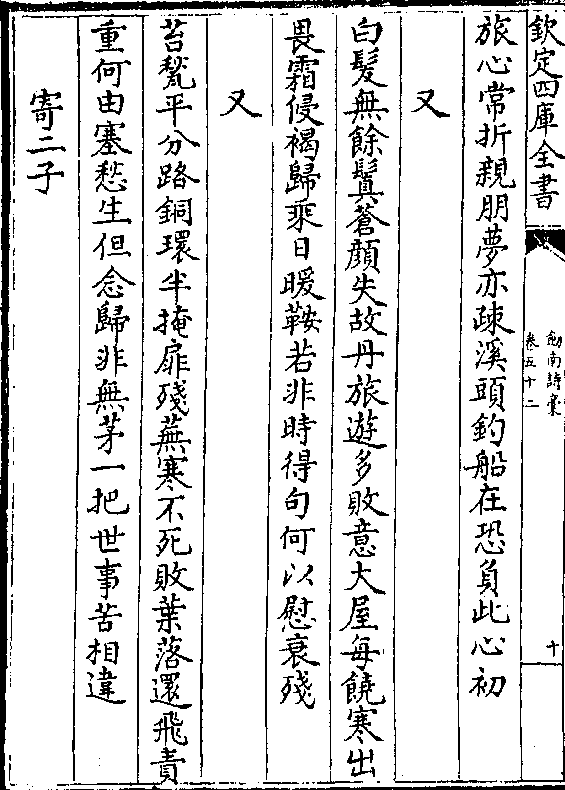 欽定四庫全書
劍南詩稾
卷五十二
十
旅心常折親朋夢亦疎溪頭釣船在恐負此心初
又
白髮無餘鬒蒼顔失故丹旅遊多敗意大屋每饒寒出
畏霜侵褐歸乘日暖鞍若非時得句何以慰衰殘
又
苔甃平分路銅環半掩扉殘蕪寒不死敗葉落還飛責
重何由塞愁生但念歸非無茅一把世事苦相違
寄二子